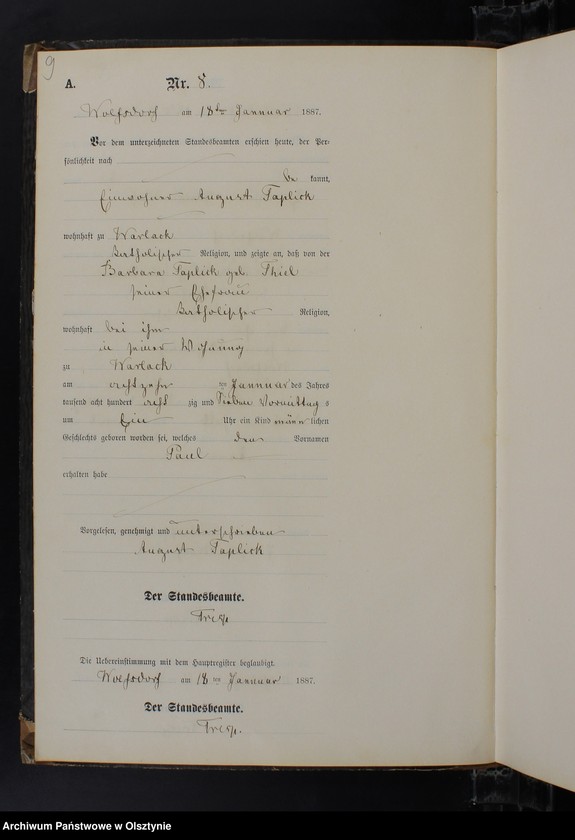 9
A. Nr. 8.
Wolfsdorf am 18ten Januar 1887.
Vor dem unterzeichneten Standesbeamten erschien heute, der Per-
sönlichkeit nach
be kannt,
Einwohner August Taplick
wohnhaft zu Warlack
katholischer Religion, und zeigte an, daß von der
Barbara Taplick geb. Thiel
seiner Ehefrau
katholischer Religion,
wohnhaft bei ihm
in seiner Wohnung
zu Warlack
am achtzehn ten Januar des Jahres
tausend acht hundert acht zig und sieben Vormittag s
um Ein Uhr ein Kind männ lichen
Geschlechts geboren worden sei, welches den Vornamen
Paul
erhalten habe
Vorgelesen, genehmigt und unterschrieben
August Taplick
Der Standesbeamte.
Die Uebereinstimmung mit dem Hauptregister beglaubigt.
Wolfsdorf am 18ten Januar 1887.
Der Standesbeamte.
Archiwum Państwowe w Olsztynie